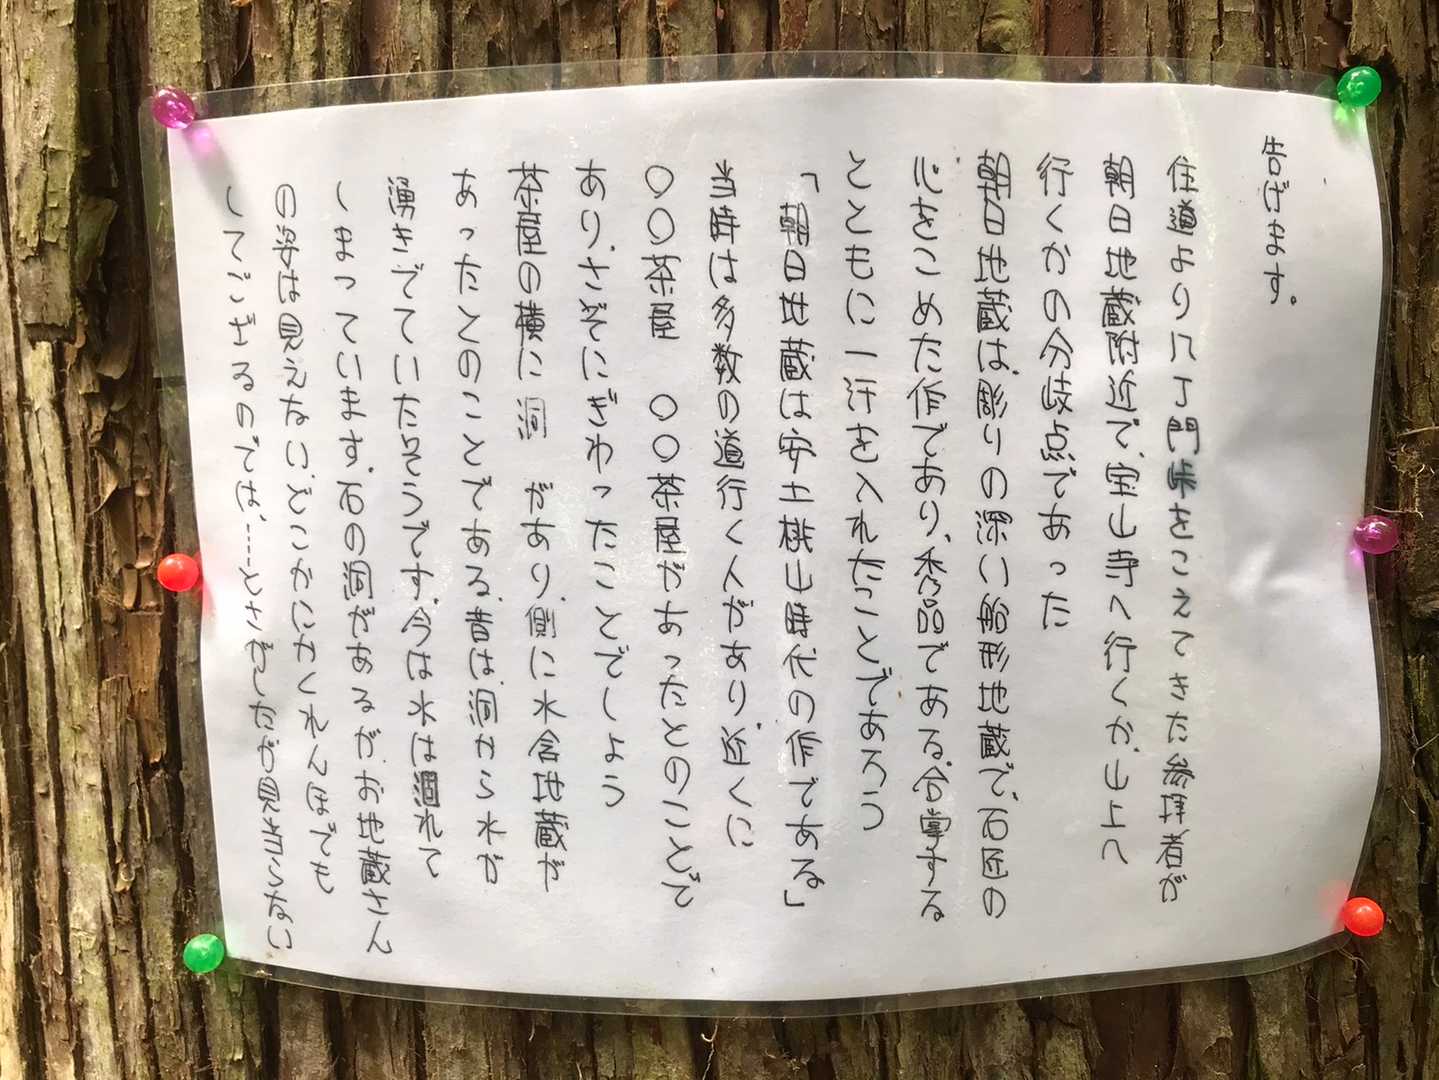 告げます。
住道より八丁門峠をこえてきた参拝者が
朝日地蔵附近で、宝山寺へ行くか、山上へ
行くかの分岐点であった
朝日地蔵は、彫りの深い船形地蔵で、石匠の
心をこめた作であり、秀品である。合掌する
とともに一汗を入れたことであろう
「朝日地蔵は安土桃山時代の作である」
当時は多数の道行く人があり、近くに
〇〇茶屋 〇〇茶屋があったとのことで
あり、さぞにぎわったことでしょう
茶屋の横に洞 があり、側に水含地蔵が
あったとのことである。昔は、洞から水が
湧きでていたそうです。今は水は涸れて
しまっています。石の洞があるが、お地蔵さん
の姿は見えない、どこかにかくれんぼでも
してござるのでは、……とさがしたが見当らない